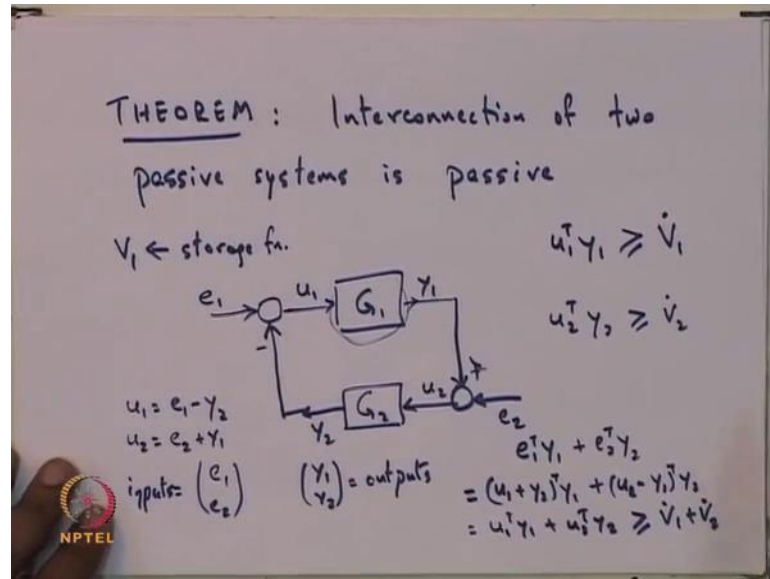 THEOREM : Interconnection of two
passive systems is passive
V₁ ← storage fn.
u₁ᵀ y₁ ≥ V̇₁
u₂ᵀ y₂ ≥ V̇₂
e₁
u₁
G₁
y₁
-
+
G₂
u₂
y₂
e₂
u₁ = e₁ - y₂
u₂ = e₂ + y₁
inputs = (e₁ e₂)
(y₁ y₂) = outputs
e₁ᵀ y₁ + e₂ᵀ y₂
= (u₁ + y₂)ᵀ y₁ + (u₂ - y₁)ᵀ y₂
= u₁ᵀ y₁ + u₂ᵀ y₂ ≥ V̇₁ + V̇₂
NPTEL